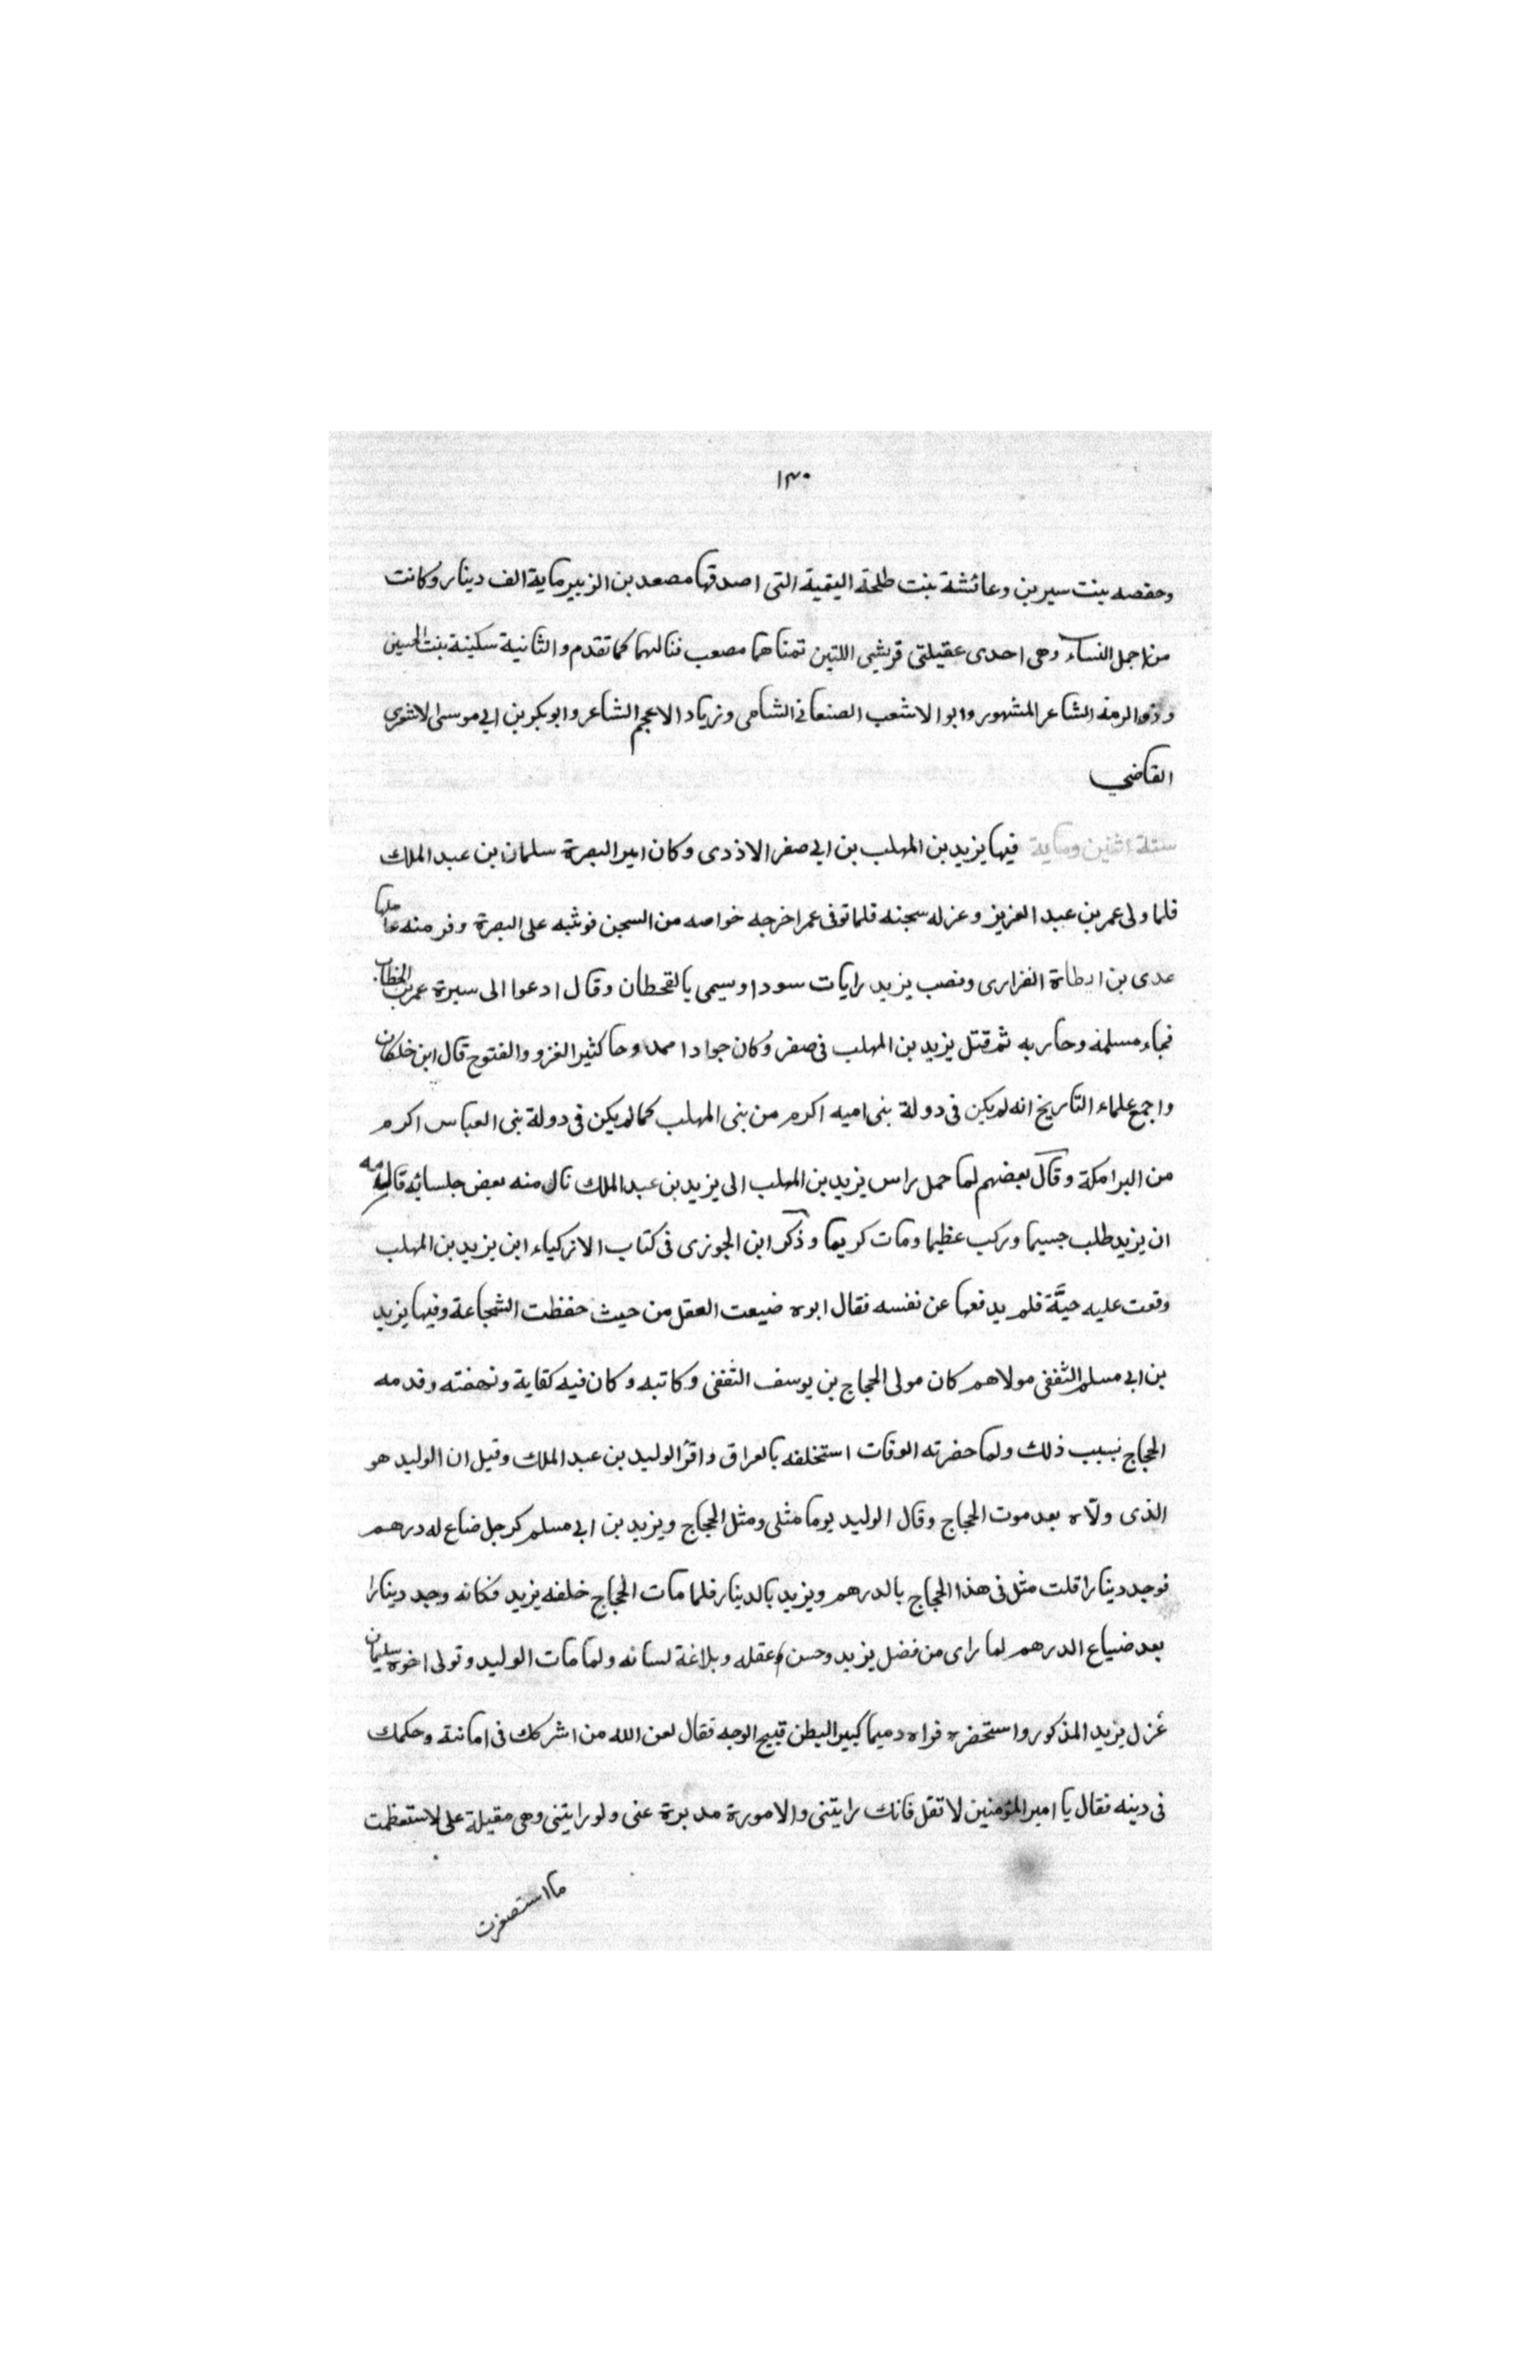 ١٣٠
وحفصه بنت سيرين وعائشة بنت طلحة اليتمية التى اصدقها مصعد بن الزبير ماية الف دينار وكانت
من اجمل النساء وهى احدى عقيلتى قريشى اللتين تمناهما مصعب فنالهما كما تقدم والثانية سكينة بنت الحسين
وذو الرمة الشاعر المشهور وابو الاشعب الصنعانى الشامى وزياد الاعجم الشاعر وابو بكر بن ابى موسى الاشعرى
القاضي
سنة اثنين وماية فيها يزيد بن المهلب بن ابى صفر الاذدى وكان امير البصرة سلمان ابن عبد الملك
فلما ولى عمر بن عبد العزيز وعزله سجنه فلما توفى عمر اخرجه خواصه من السجن فوثبه على البصرة وفر منه عاملها
عدى بن ارطاة الفزارى ونصب يزيد رايات سودا وسيمى بالقحطان وقال ادعوا الى سيرة عمر بن الخطاب
فجاء مسلمة وحاربه ثم قتل يزيد بن المهلب فى صفر وكان جوادا ممدوحا كثير الغزو والفتوح قال ابن خلكان
واجمع علماء التاريخ انه لم يكن فى دولة بنى اميه اكرم من بنى المهلب كما لم يكن فى دولة بنى العباس اكرم
من البرامكة وقال بعضهم لما حمل راس يزيد بن المهلب الى يزيد بن عبد الملك نال منه بعض جلسائه قال له مه
ان يزيد طلب جسيما وركب عظيما ومات كريما وذكر ابن الجوزى فى كتاب الازكياء ابن يزيد بن المهلب
وقعت عليه حيَّة فلم يدفعها عن نفسه فقال ابوه ضيعت العقل من حيث حفظت الشجاعة وفيها يزيد
بن ابى مسلم الثقفى مولاهم كان مولى الحجاج بن يوسف الثقفى وكاتبه وكان فيه كفاية ونهضته وقدمه
الحجاج بسبب ذلك ولما حضرته الوفات استخلفه بالعراق واقرّ الوليد بن عبد الملك وقيل ان الوليد هو
الذى ولّاه بعد موت الحجاج وقال الوليد يوما مثلى ومثل الحجاج ويزيد بن ابى مسلم كرجل ضاع له درهم
فوجد دينارا قلت مثل فى هذا الحجاج بالدرهم ويزيد بالدينار فلما مات الحجاج خلفه يزيد فكانه وجد دينارا
بعد ضياع الدرهم لما راى من فضل يزيد وحسن عقله وبلاغة لسانه ولما مات الوليد وتولى اخوه سليمان
عزل يزيد المذكور واستحضره فراه دميما كبير البطن قبيح الوجه فقال لعن الله من اشركك فى امانتة وحكمك
فى دينه فقال يا امير المؤمنين لا تقل فانك رايتنى والامورة مدبرة عنى ولو رايتنى وهى مقيلة على لاستعظمت
ما استصغرت